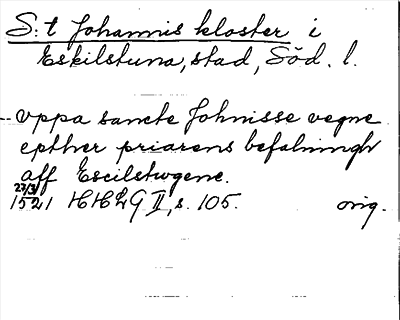 S:t Johannis kloster i
Eskilstuna, stad, Söd. l.
-- uppa sancte Johnisse vegne
epther priarens befalningh
aff Escilstwgene.
27/3
1521 HH2G II, s. 105. orig.